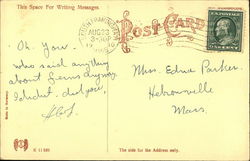 This Space For Writing Messages
POST CARD
AUG 23
Oh. You.
who said anything
about Germs anyway.
I didn't, did you,
Miss. Edna Parker.
Hebronville
Mass.
Made in Germany
The side for the Address only.